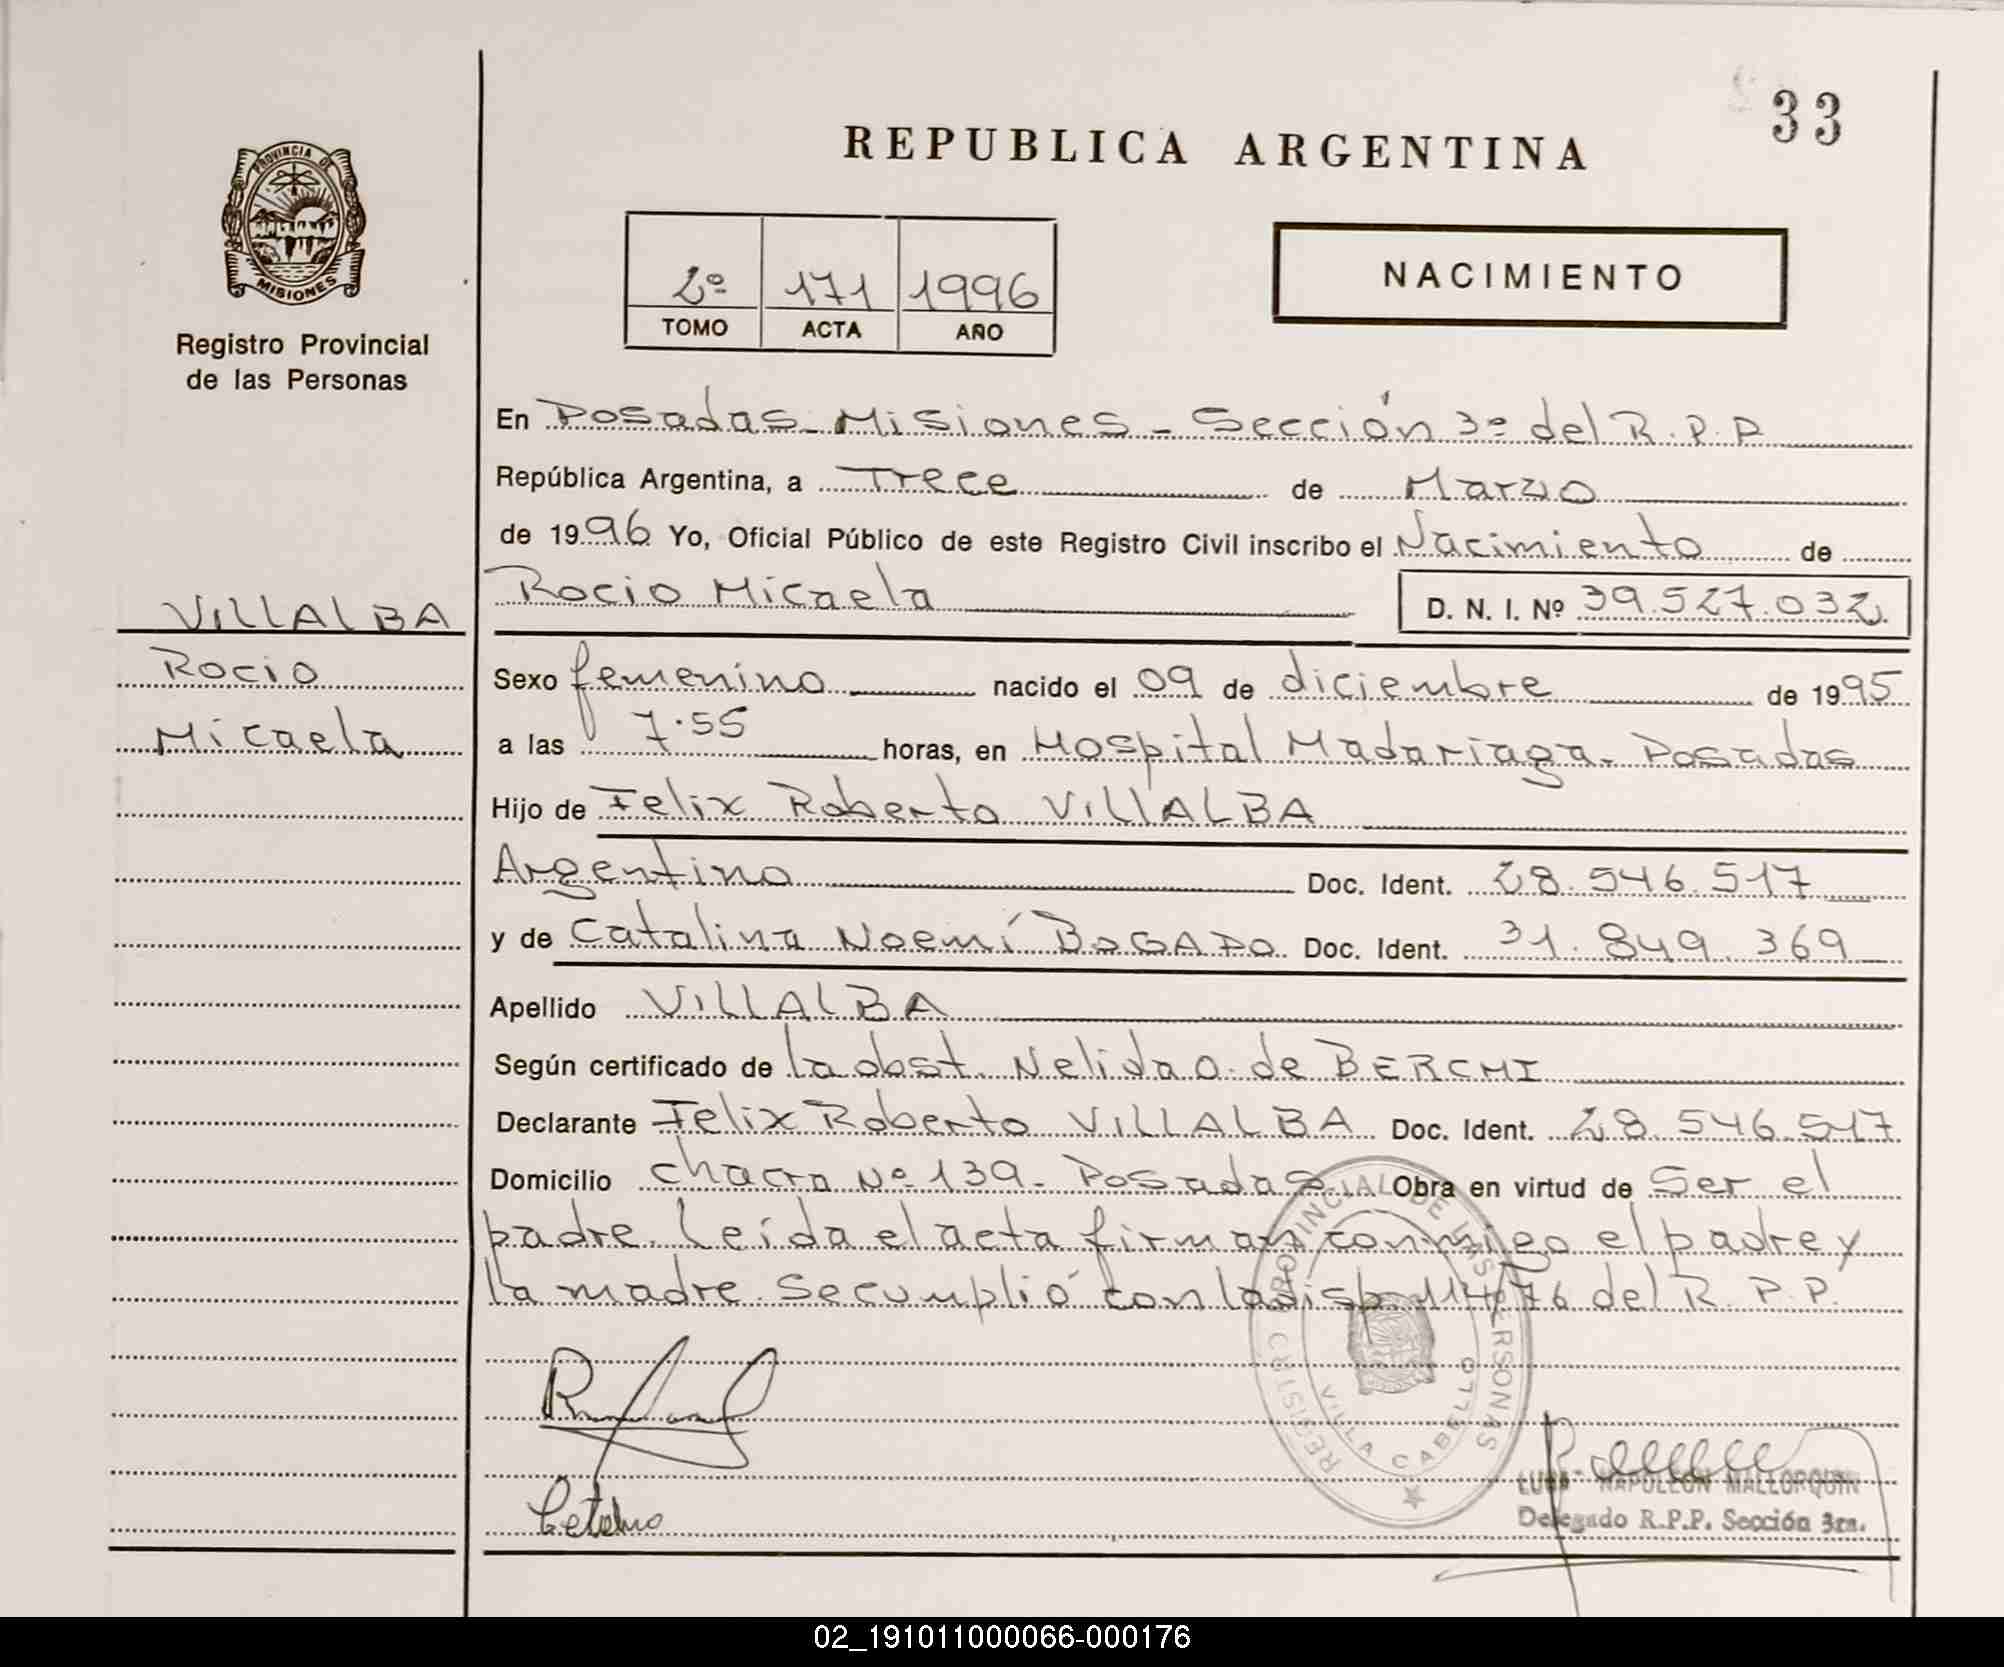 33
REPUBLICA ARGENTINA
PROVINCIA DE
MISIONES
Registro Provincial
de las Personas
2º 171 1996
TOMO ACTA AÑO
NACIMIENTO
En Posadas - Misiones - Sección 3º del R.P.P
República Argentina, a Trece de Marzo
de 1996 Yo, Oficial Público de este Registro Civil inscribo el Nacimiento de
Rocio Micaela D. N. I. Nº 39.527.032
VILLALBA
Rocio
Micaela
Sexo femenino nacido el 09 de diciembre de 1995
a las 7.55 horas, en Hospital Madariaga - Posadas
Hijo de Felix Roberto VILLALBA
Argentino Doc. Ident. 28.546.517
y de Catalina Noemí BOGADO Doc. Ident. 31.849.369
Apellido VILLALBA
Según certificado de la obst. Nelida O. de BERCHI
Declarante Felix Roberto VILLALBA Doc. Ident. 28.546.517
Domicilio chacra Nº 139 - Posadas Obra en virtud de Ser el
padre. Leída el acta firman conmigo el padre y
la madre. Se cumplió con la disp. 114/76 del R.P.P.
REGISTRO PROVINCIAL DE LAS PERSONAS
VILLA CABELLO
NAPOLEON MALLORQUIN
Delegado R.P.P. Sección 3ra.
02_191011000066-000176